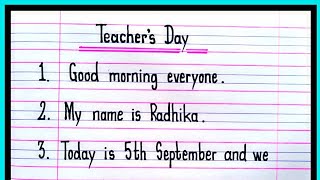 Teacher's Day
1. Good morning everyone.
2. My name is Radhika.
3. Today is 5th September and we